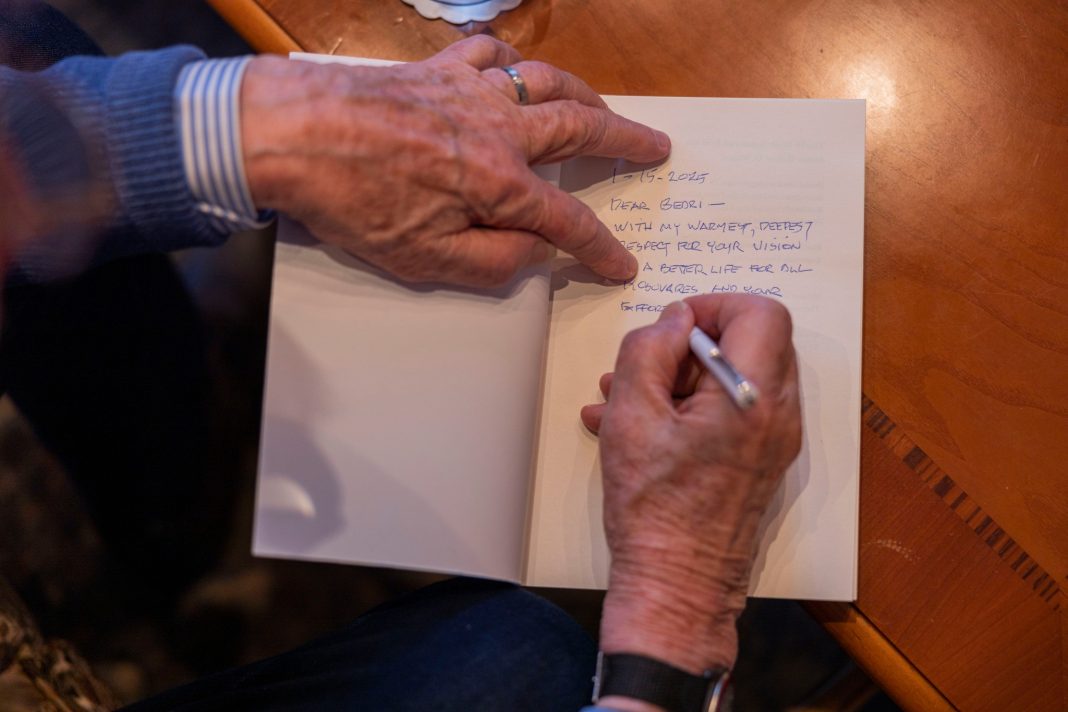 1-15-2025
DEAR BEDRI —
WITH MY WARMEST, DEEPEST
RESPECT FOR YOUR VISION
A BETTER LIFE FOR ALL
AND YOUR